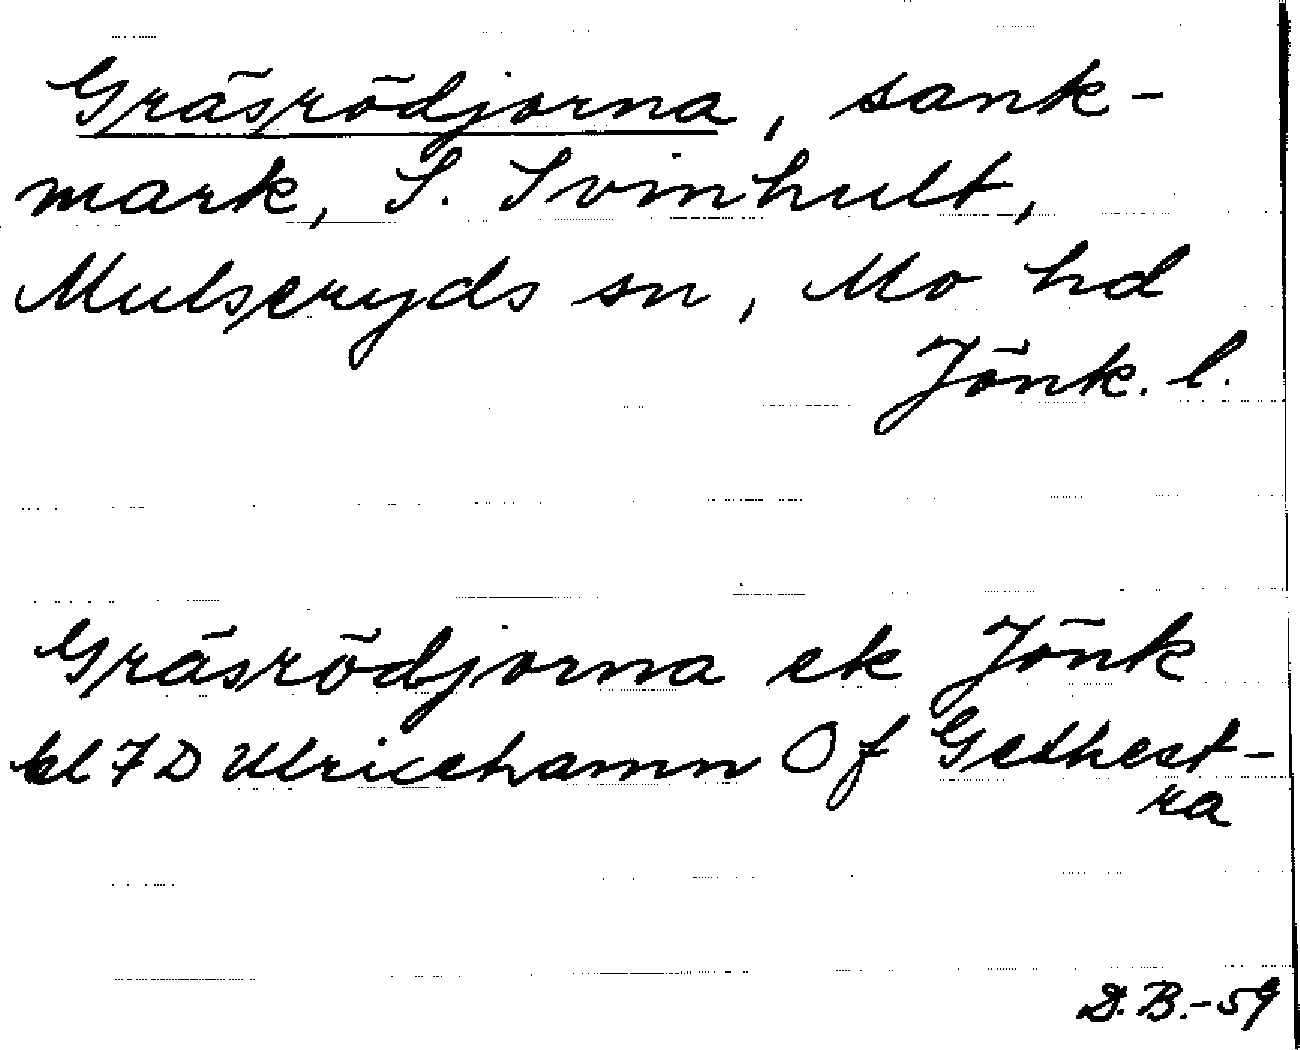 Gräsrödjorna, sank-
mark, S. Svinhult,
Mulseryds sn, Mo hd
Jönk. l.
Gräsrödjorna ek Jönk
bl 7 D Ulricehamn Of Gethest-
ra
D.B.-59